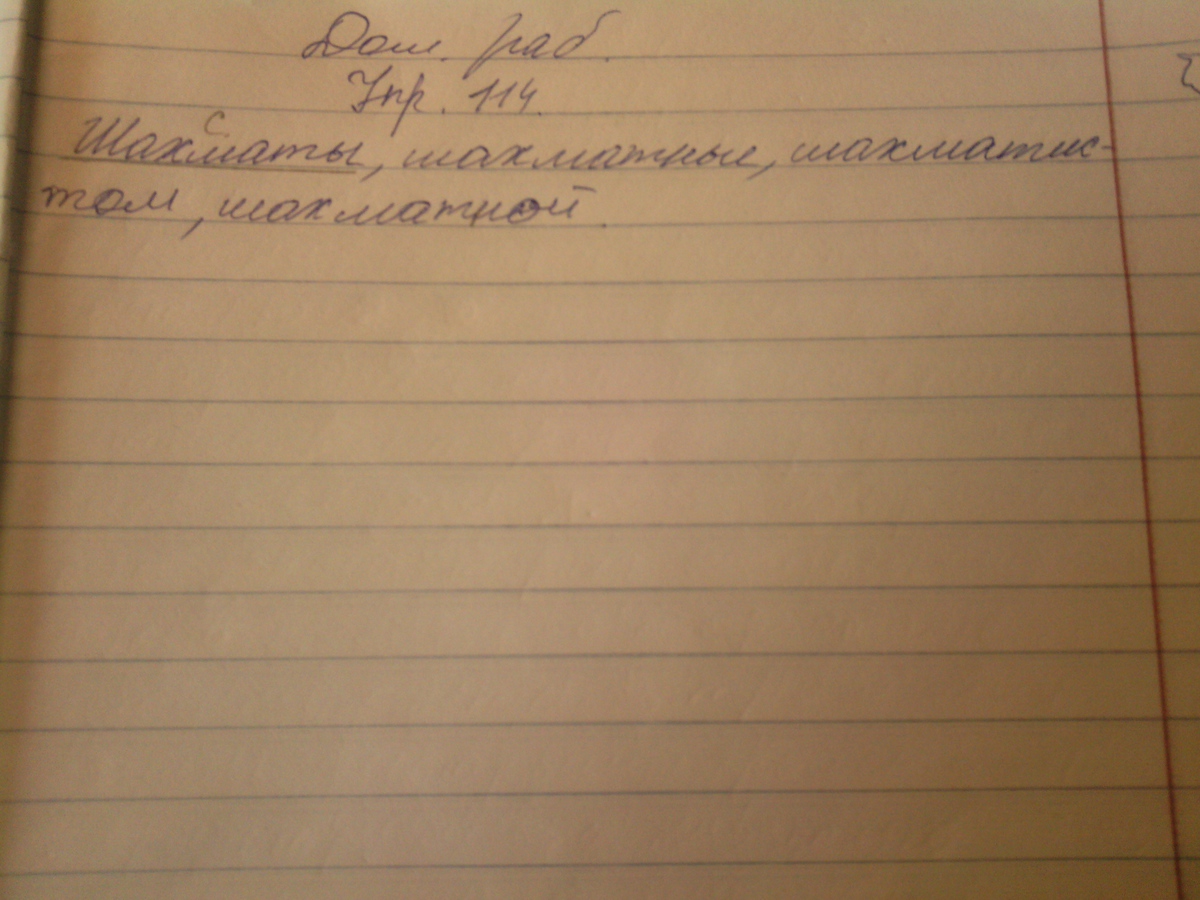 Дом. раб.
Упр. 114.
с
Шахматы, шахматные, шахматис-
том, шахматной.